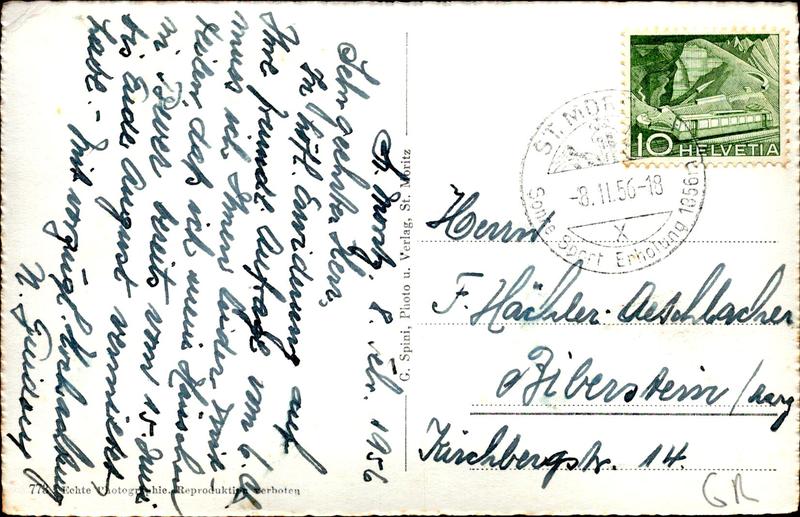 St. Moritz, 8. Febr. 1956
Sehr geehrter Herr,
In höfl. Erwiderung auf
Ihre freundl. Anfrage vom 6. ds.
muss ich Ihnen leider mit-
teilen, dass ich mein Häuschen
in Bever bereits vom 15. Juni
bis Ende August vermietet
habe. - Mit vorzügl. Hochachtung
G. Spini, Photo u. Verlag, St. Moritz
778 Echte Photographie. Reproduktion verboten
HELVETIA
10
ST. MOR
-8.II.56-18
X
Sonne Sport Erholung 1856m
Herrn
F. Hächler-Aeschbacher
Biberstein/Aarg
Kirchbergstr. 14.
GR